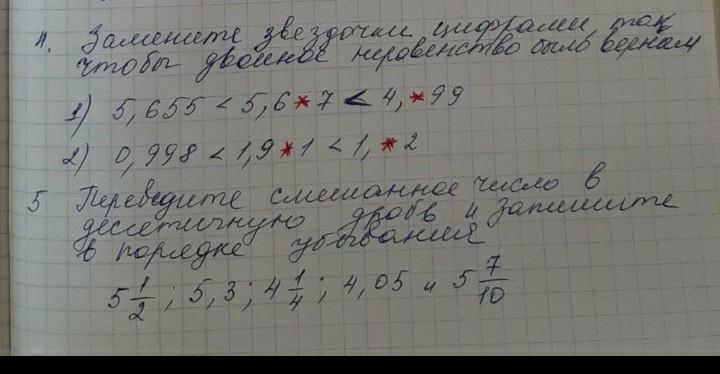 4. Замените звездочки цифрами, так
чтобы двойное неравенство было верным
1) 5,655 < 5,6*7 < 4,*99
2) 0,998 < 1,9*1 < 1,*2
5 Переведите смешанное число в
десятичную дробь и запишите
в порядке убывания
5 1/2 ; 5,3 ; 4 1/4 ; 4,05 и 5 7/10